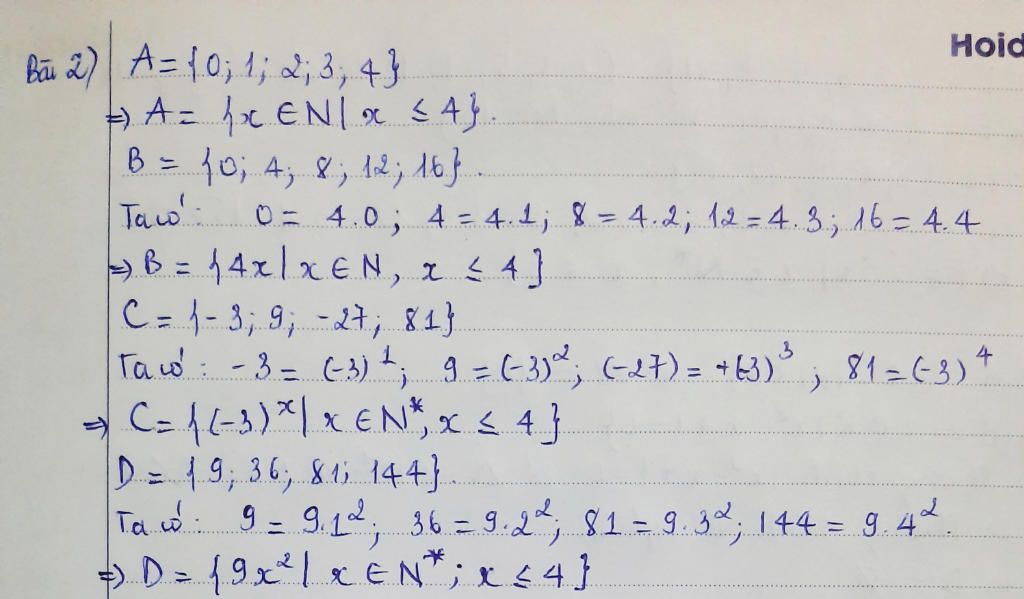 Hoid
Bài 2) A = {0; 1; 2; 3; 4}
⇒ A = {x ∈ N | x ≤ 4}.
B = {0; 4; 8; 12; 16}.
Ta có: 0 = 4.0; 4 = 4.1; 8 = 4.2; 12 = 4.3; 16 = 4.4
⇒ B = {4x | x ∈ N, x ≤ 4}
C = {-3; 9; -27; 81}
Ta có: -3 = (-3)¹; 9 = (-3)²; (-27) = +(-3)³; 81 = (-3)⁴
⇒ C = {(-3)ˣ | x ∈ N*, x ≤ 4}
D = {9; 36; 81; 144}.
Ta có: 9 = 9.1²; 36 = 9.2²; 81 = 9.3²; 144 = 9.4².
⇒ D = {9x² | x ∈ N*; x ≤ 4}